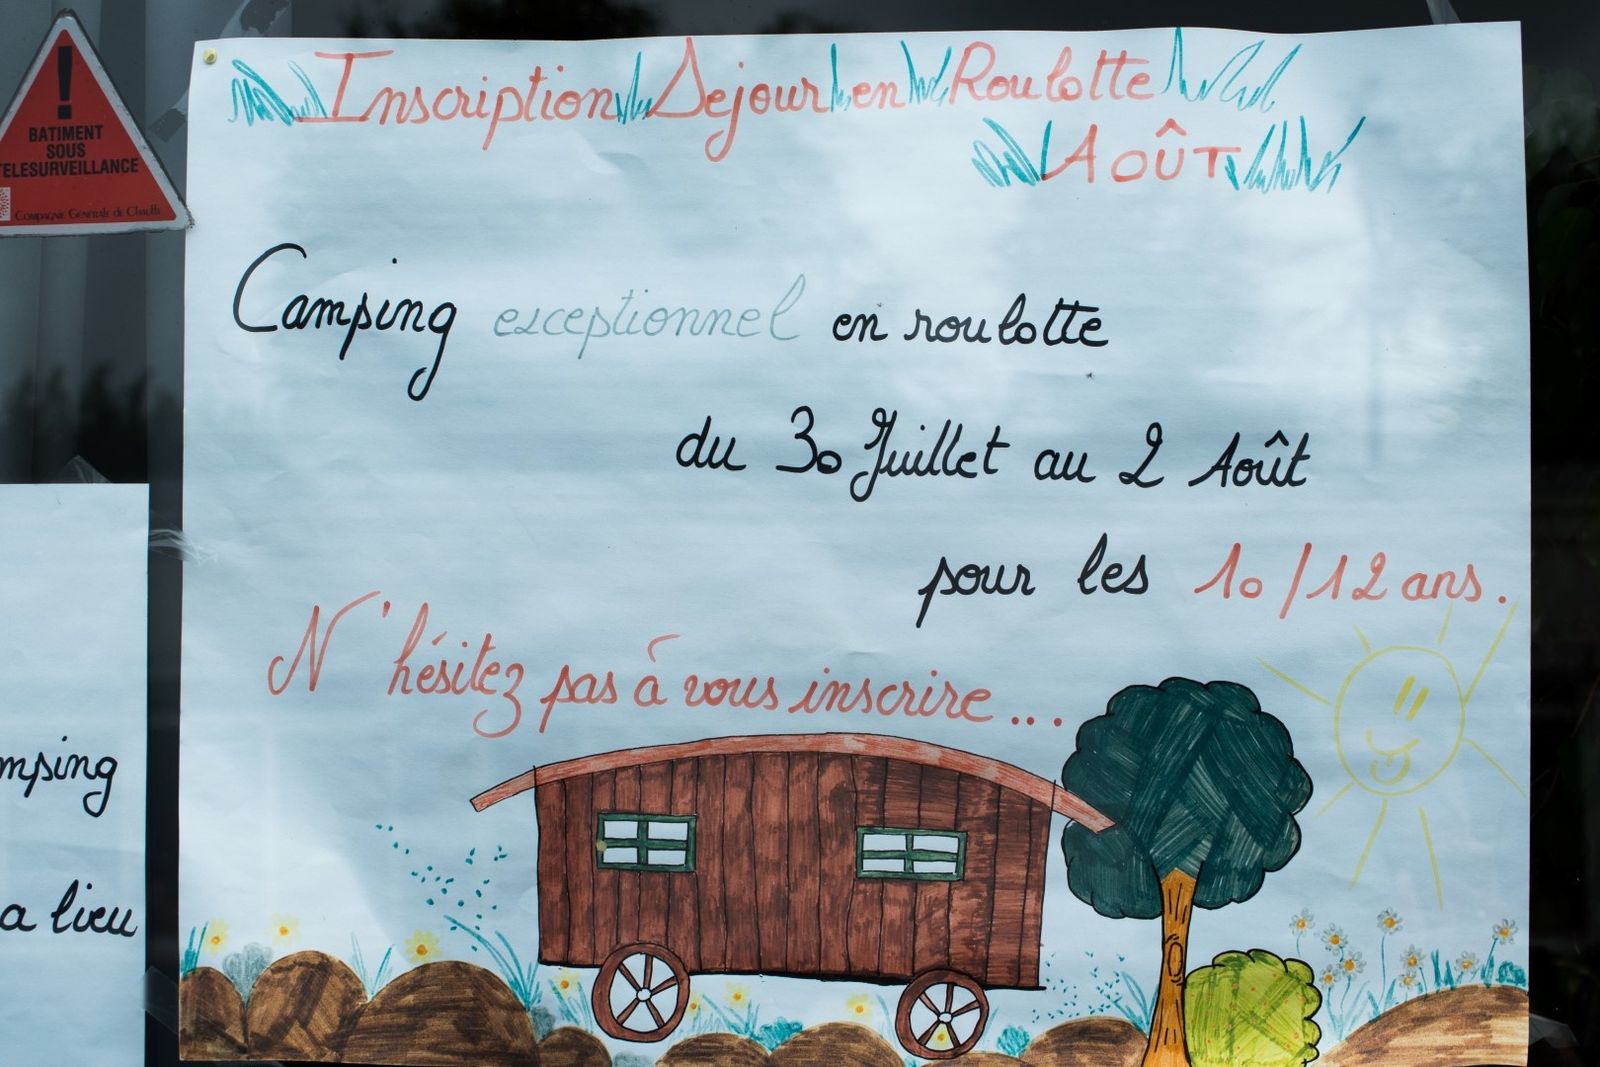 Inscription Sejour en Roulotte
AOÛT
Camping exceptionnel en roulotte
du 30 Juillet au 2 Août
pour les 10/12 ans.
N'hésitez pas à vous inscrire...
!
BATIMENT
SOUS
TELESURVEILLANCE
COMPAGNIE GÉNÉRALE DE CHAUFFE
mping
a lieu